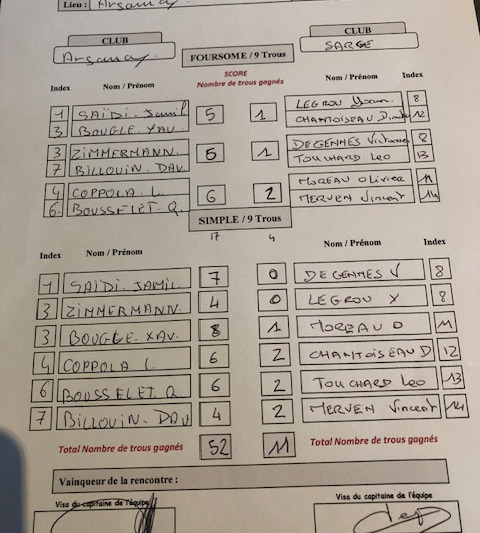 Lieu : Arganay
CLUB CLUB
Arganay. FOURSOME / 9 Trous SARGE
SCORE
Index Nom / Prénom Nombre de trous gagnés Nom / Prénom Index
1 SAÏDI. Jamil 5 1 LEGROU Yoann 8
3 BOUGLE. XAV CHANTOISEAU 12
3 ZIMMERMANN. 5 1 DEGENNES 8
7 BILLOUIN. DAV. TOUCHARD Leo 13
4 COPPOLA L. 6 2 MOREAU Olivier 11
6. BOUSSELET. Q. MERVEN Vincent 14
SIMPLE / 9 Trous
17 4
Index Nom / Prénom Nom / Prénom Index
1 SAÏDI. JAMIL 7 0 DEGENNES V 8
3 ZIMMERMANN. 4 0 LEGROU Y 8
3 BOUGLE. XAV. 8 1 MOREAU O 11
4 COPPOLA L. 6 2 CHANTOISEAU D 12
6 BOUSSELET. Q 6 2 TOUCHARD Leo 13
7 BILLOUIN. DAV 4 2 MERVEN Vincent 14
Total Nombre de trous gagnés 52 11 Total Nombre de trous gagnés
Vainqueur de la rencontre :
Visa du capitaine de l'équipe Visa du capitaine de l'équipe